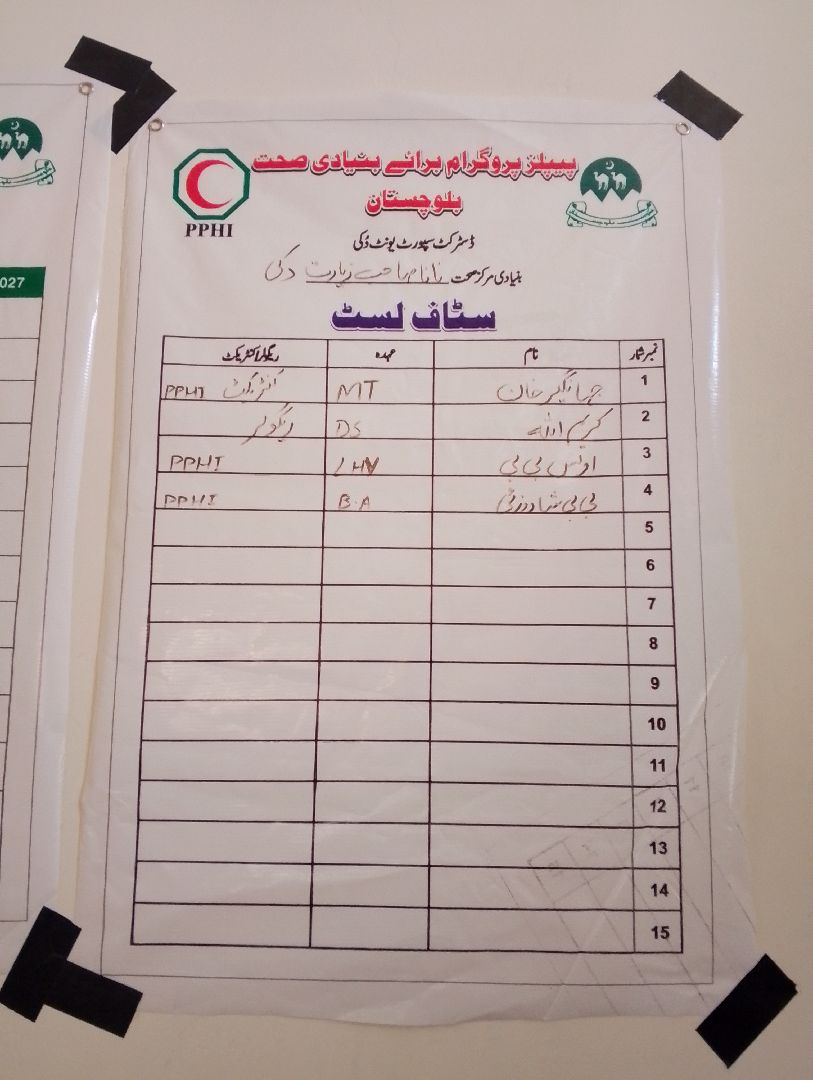 027
پیپلز پروگرام برائے بنیادی صحت
بلوچستان
PPHI
ڈسٹرکٹ سپورٹ یونٹ دُکی
بنیادی مرکز صحت نانا صاحب زیارت دکی
سٹاف لسٹ
نمبر شمار نام عہدہ ریگولر/کنٹریکٹ
1 جہانگیر خان MT کنٹریکٹ PPHI
2 کریم اللہ DS ریگولر
3 بی بی LHV PPHI
4 بی بی B.A PPHI
5
6
7
8
9
10
11
12
13
14
15